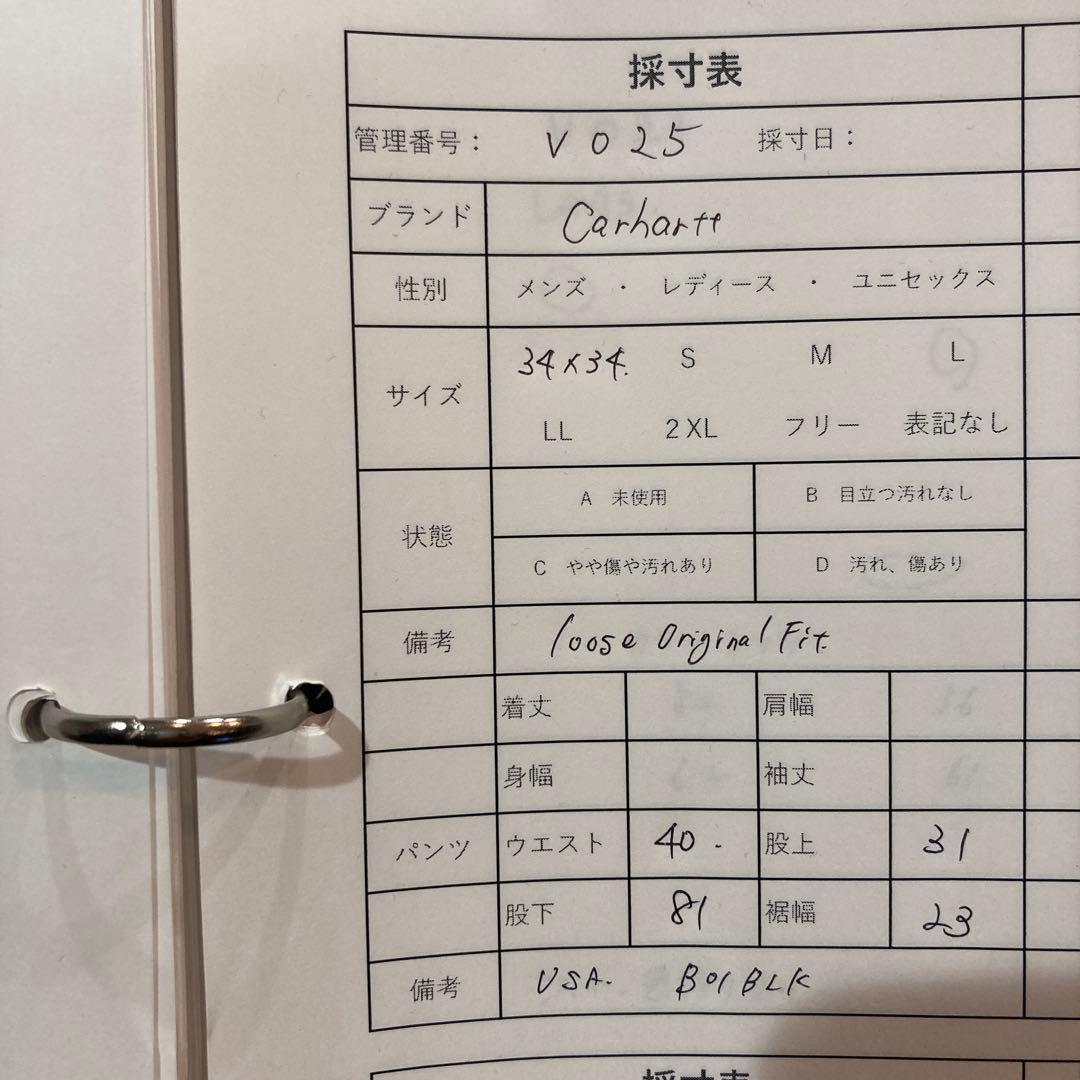 採寸表
管理番号： V025 採寸日：
ブランド Carhartt
性別 メンズ ・ レディース ・ ユニセックス
サイズ 34×34. S M L
LL 2XL フリー 表記なし
状態 A 未使用 B 目立つ汚れなし
C やや傷や汚れあり D 汚れ、傷あり
備考 loose Original Fit.
着丈 肩幅
身幅 袖丈
パンツ ウエスト 40. 股上 31
股下 81 裾幅 23
備考 USA. B01 BLK
採寸表